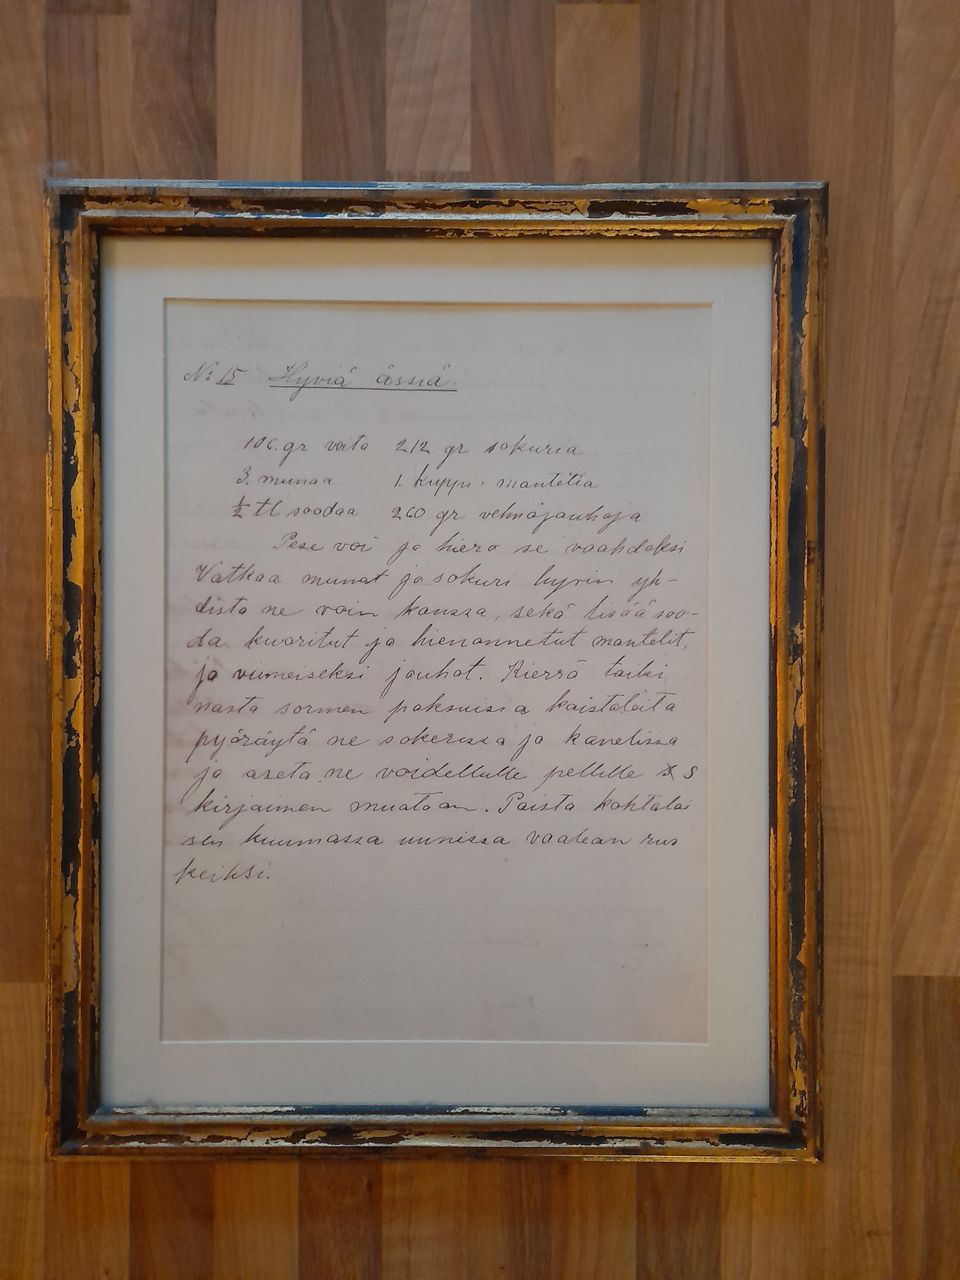 No: 15 Hyviä ässiä.
106. gr voita 212 gr sokuria
3. munaa 1. Kuppi. mantelia
½ tl soodaa 260 gr vehnäjauhoja
Pese voi ja hiero se vaahdoksi
Vatkaa munat ja sokuri hyvin yh-
distä ne voin kanssa, sekä lisää soo-
da kuoritut ja hienonnetut mantelit,
ja viimeiseksi jauhot. Kierrä taiki
nasta sormen paksuisia kaistaleita
pyöräytä ne sokerissa ja kanelissa
ja aseta ne voidellulle pellille s
kirjaimen muotoon. Paista kohtalai
sen kuumassa uunissa vaalean rus
keiksi.